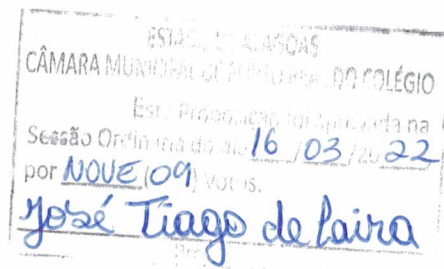 ESTADO DE ALAGOAS
CÂMARA MUNICIPAL DE PORTO REAL DO COLÉGIO
Esta Proposição foi aprovada na
Sessão Ordinária do dia 16/03/2022
por NOVE (09) votos.
José Tiago de Paiva